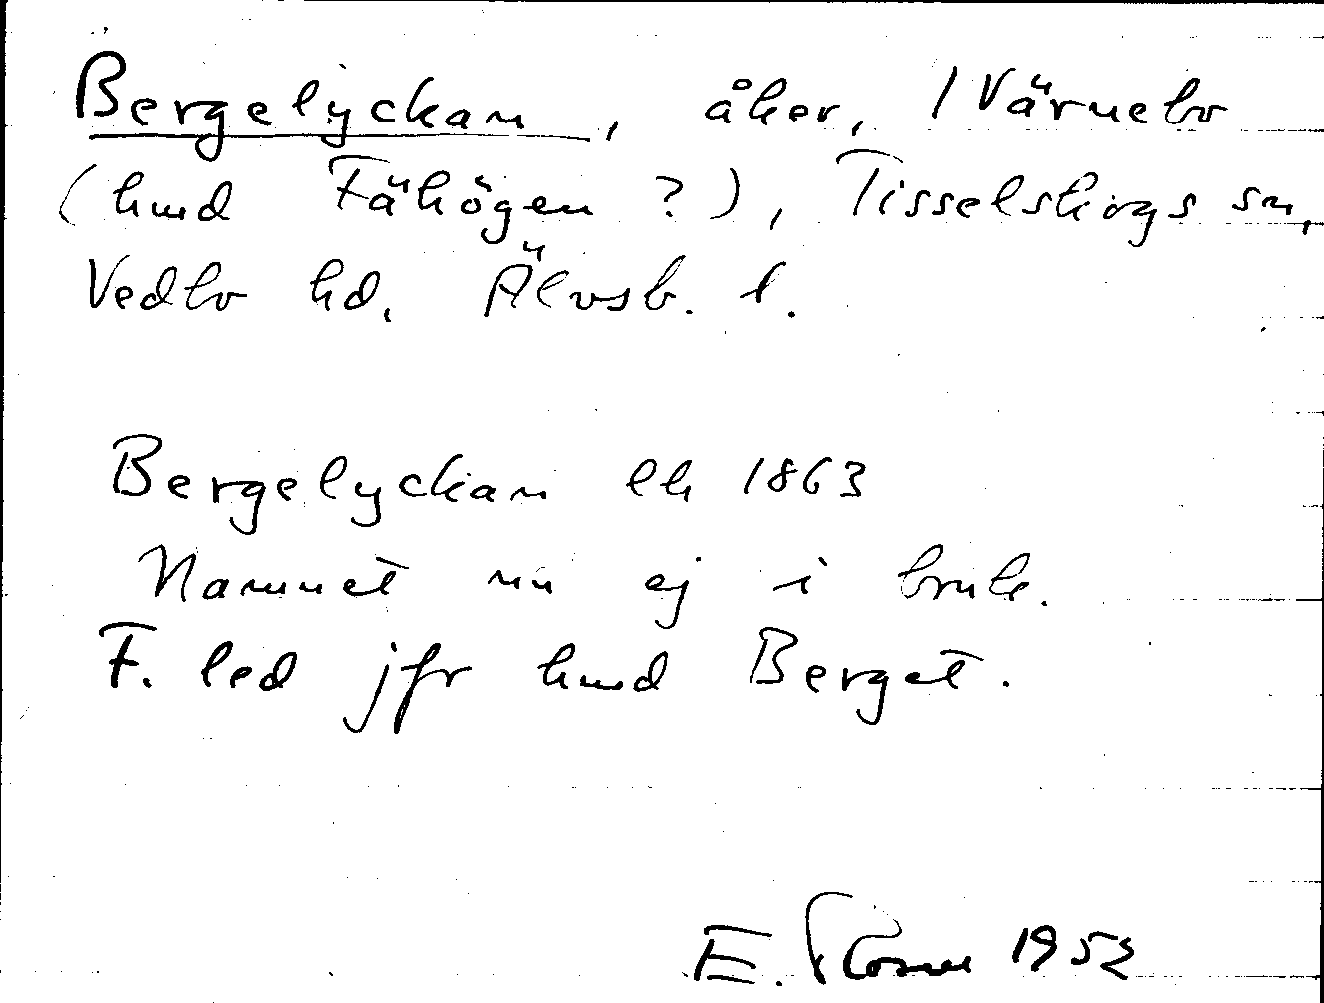 Bergelyckan, åker, 1 Värnebo
(hmd Fähögen ?), Tisselskogs sn,
Vedbo hd, Älvsb. l.
Bergelyckan lk 1863
Namnet nu ej i bruk.
F. led jfr hmd Berget.
E. Florin 1952